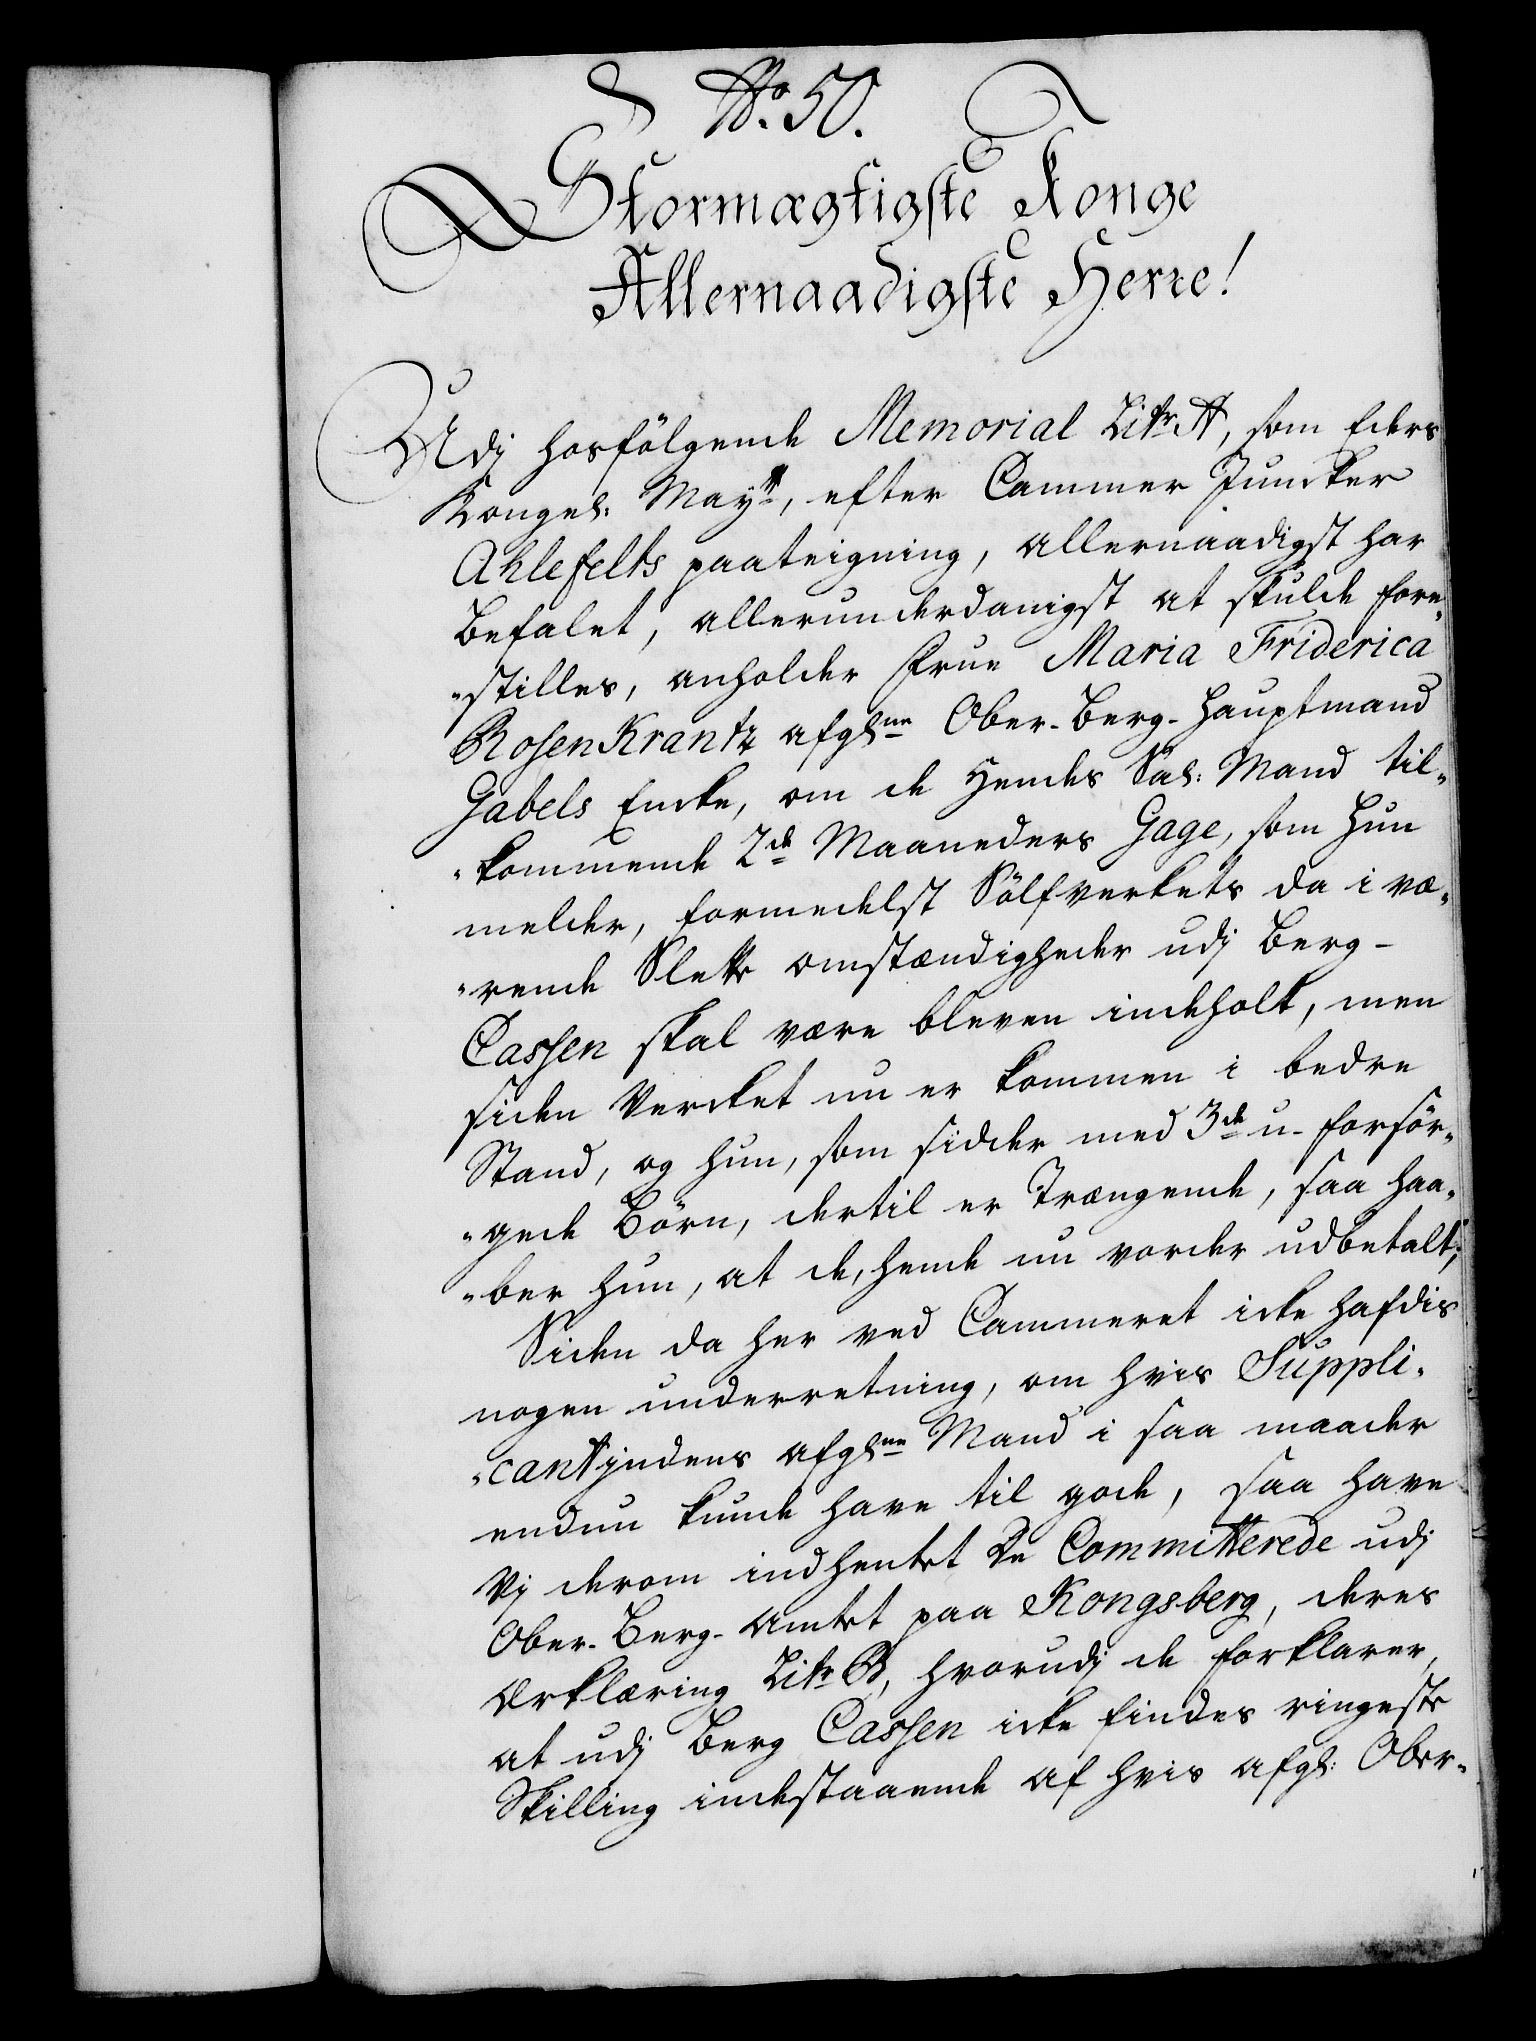 No. 50.
Stormægtigste Konge
Allernaadigste Herre!
Udj hosfölgende Memorial Litr A, som Eders
Kongel: Mayt, efter Cammer Juncker
Ahlefelts paateigning, allernaadigst har
Befalet, allerunderdanigst at skulde fore„
„stilles, anholder Frue Maria Friderica
RosenKrantz afgl:ne Ober-Berg-Hauptmand
Gabels Encke, om de Hendes Sal: Mand til„
„kommende 2de Maaneders Gage, som hun
melder, formedelst Sölfverkets da i væ„
„rende Slette omstændigheder udj Berg-
Cassen skal være bleven indeholt, men
siden Vercket nu er kommen i bedre
Stand, og hun, som sidder med 3de u-forsör„
„gede Börn, dertil er Trængende, saa haa„
„ber hun, at de, hende nu vorder udbetalt;
Siden da her ved Cammeret icke hafdis
nogen underretning, om hvis Suppli„
„cantjndens afgl:ne Mand i saa maader
endnu kunde have til gode, saa have
Vj derom indhentet De Committerede udj
Ober-Berg-Amtet paa Kongsberg, deres
Erklæring Litr B, hvorudj de forklarer,
at udj Berg Cassen icke findes ringeste
Skilling indestaaende af hvis afgl: Ober„